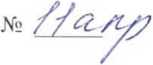 № 11апр